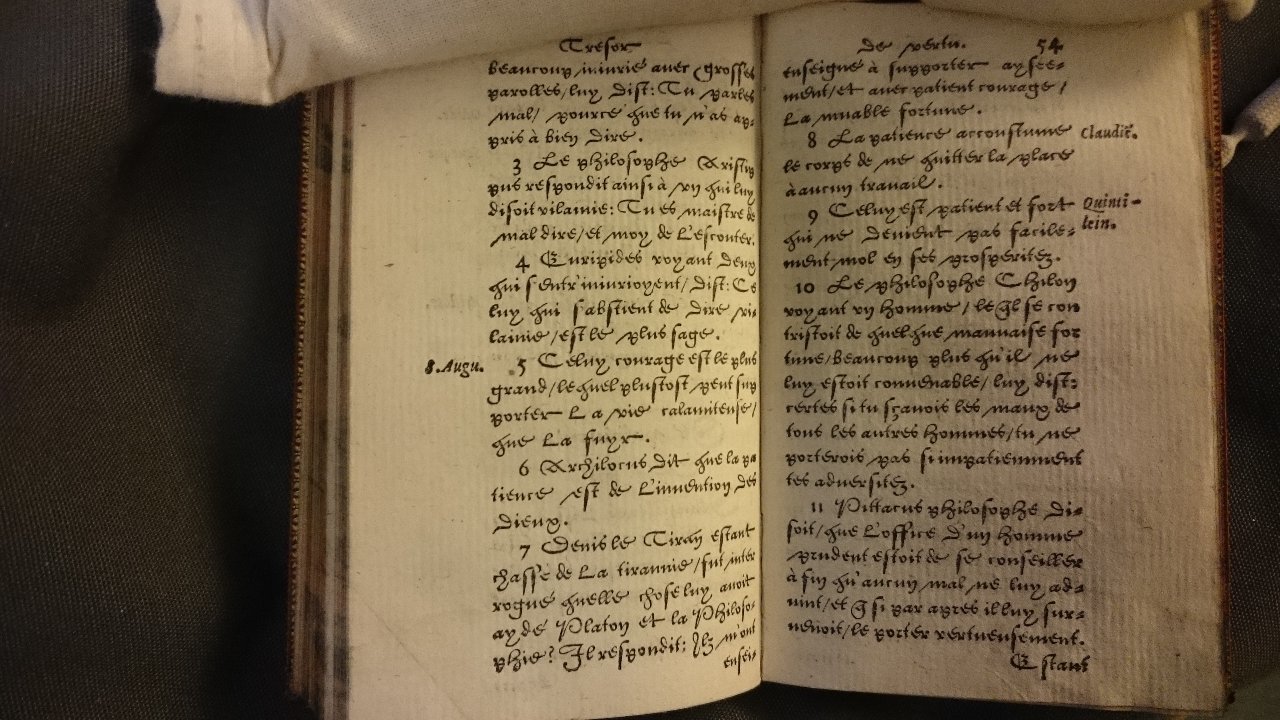 Tresor
beaucoup iniurié auec grosses
parolles/luy dist: Tu parles
mal/ pource que tu n'as ap-
pris à bien dire.
3 Le philosophe Aristip
pus respondit ainsi à vn qui luy
disoit vilainie: Tu es maistre de
mal dire/et moy de l'escouter.
4 Euripides voyant deux
qui s'entr'iniurioyent/ dist: Ce
luy qui s'abstient de dire vi-
lainie/est le plus sage.
8. Augu.
5 Celuy courage est le plus
grand/lequel plustost peut sup
porter la vie calamiteuse/
que la fuyr.
6 Archilocus dit que la pa
tience est de l'inuention des
dieux.
7 Denis le Tiran estant
chassé de la tirannie/fut inter
rogué quelle chose luy auoit
aydé Platon et la Philoso-
phie? Il respondit: Ilz m'ont
ensei-
de vertu. 54
enseigné à supporter aysee-
ment/et auec patient courage/
la muable fortune.
8 La patience accoustume
le corps de ne quitter la place
à aucun trauail.
Claudiẽ.
9 Celuy est patient et fort
qui ne deuient pas facile-
ment mol en ses prosperitez.
Quinti-
lein.
10 Le philosophe Chilon
voyant vn homme/ leq̃l se con
tristoit de quelque mauuaise for
tune/beaucoup plus qu'il ne
luy estoit conuenable/ luy dist:
certes si tu sçauois les maux de
tous les autres hommes/tu ne
porterois pas si impatiemment
tes aduersitez.
11 Pittacus philosophe di-
soit/que l'office d'un homme
prudent estoit de se conseiller
à fin qu'aucun mal ne luy ad-
uint/et q̃ si par apres il luy sur-
uenoit/le porter vertueusement.
Estant